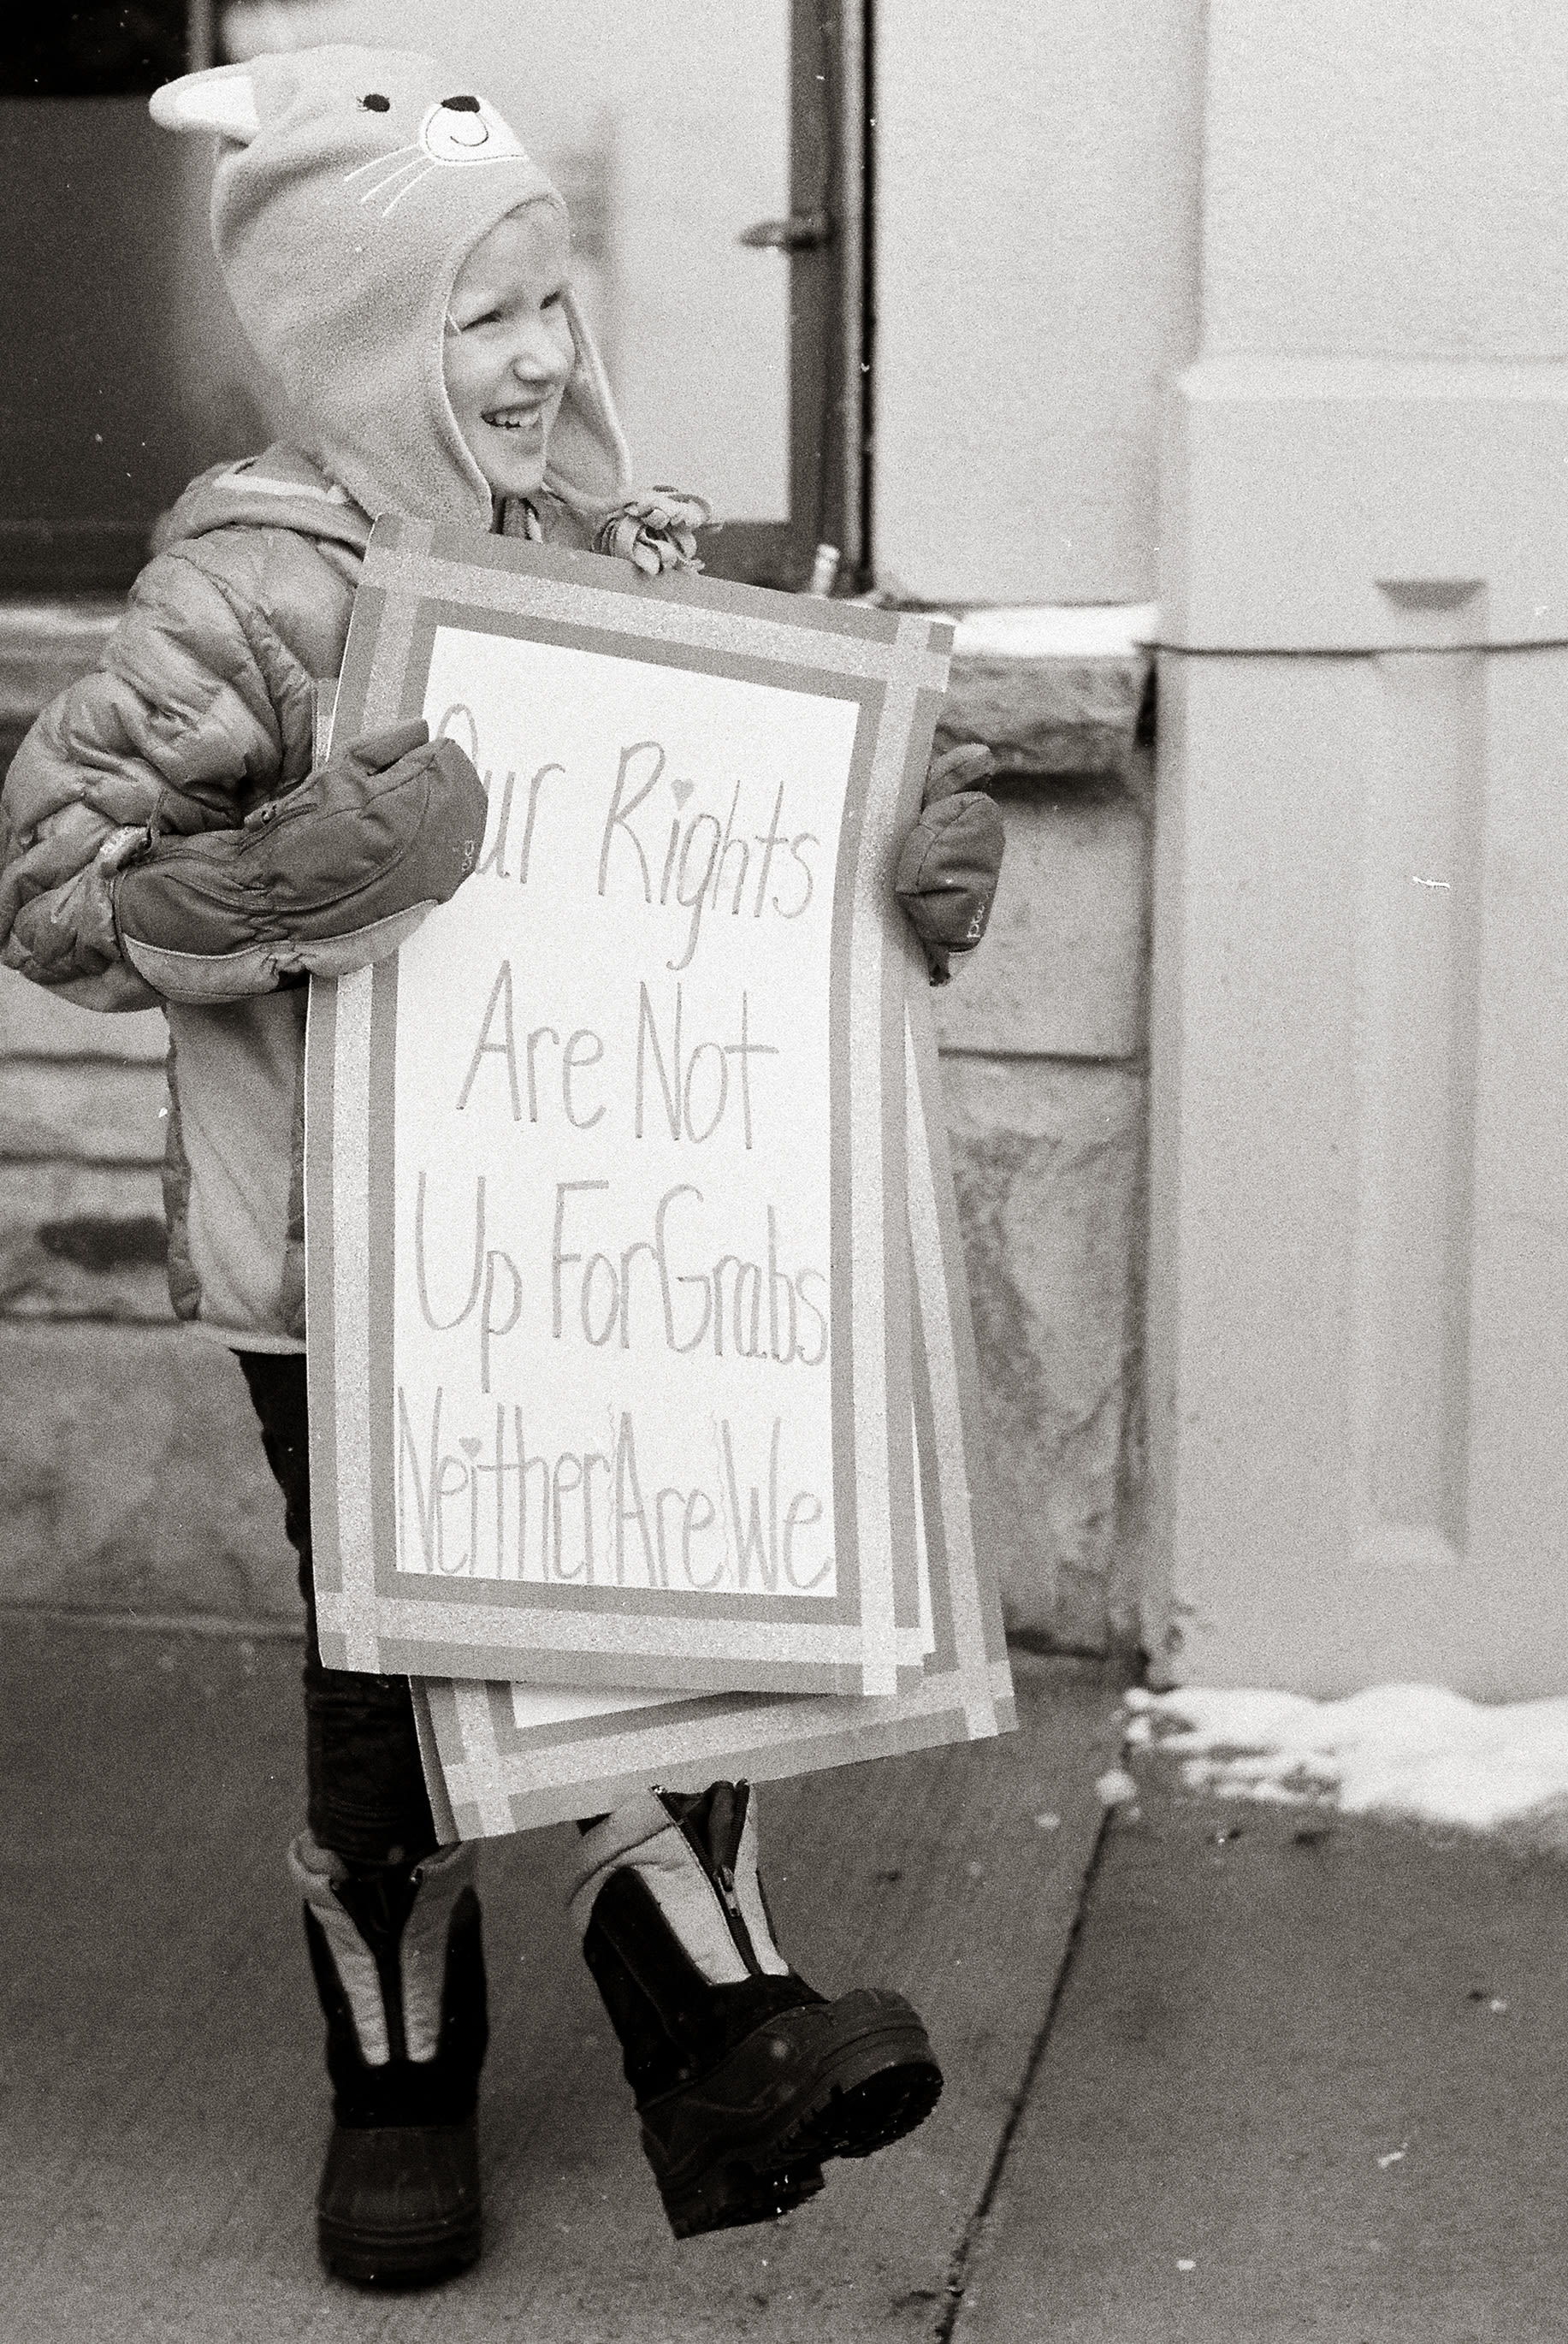 Our Rights
Are Not
Up For Grabs
Neither Are We